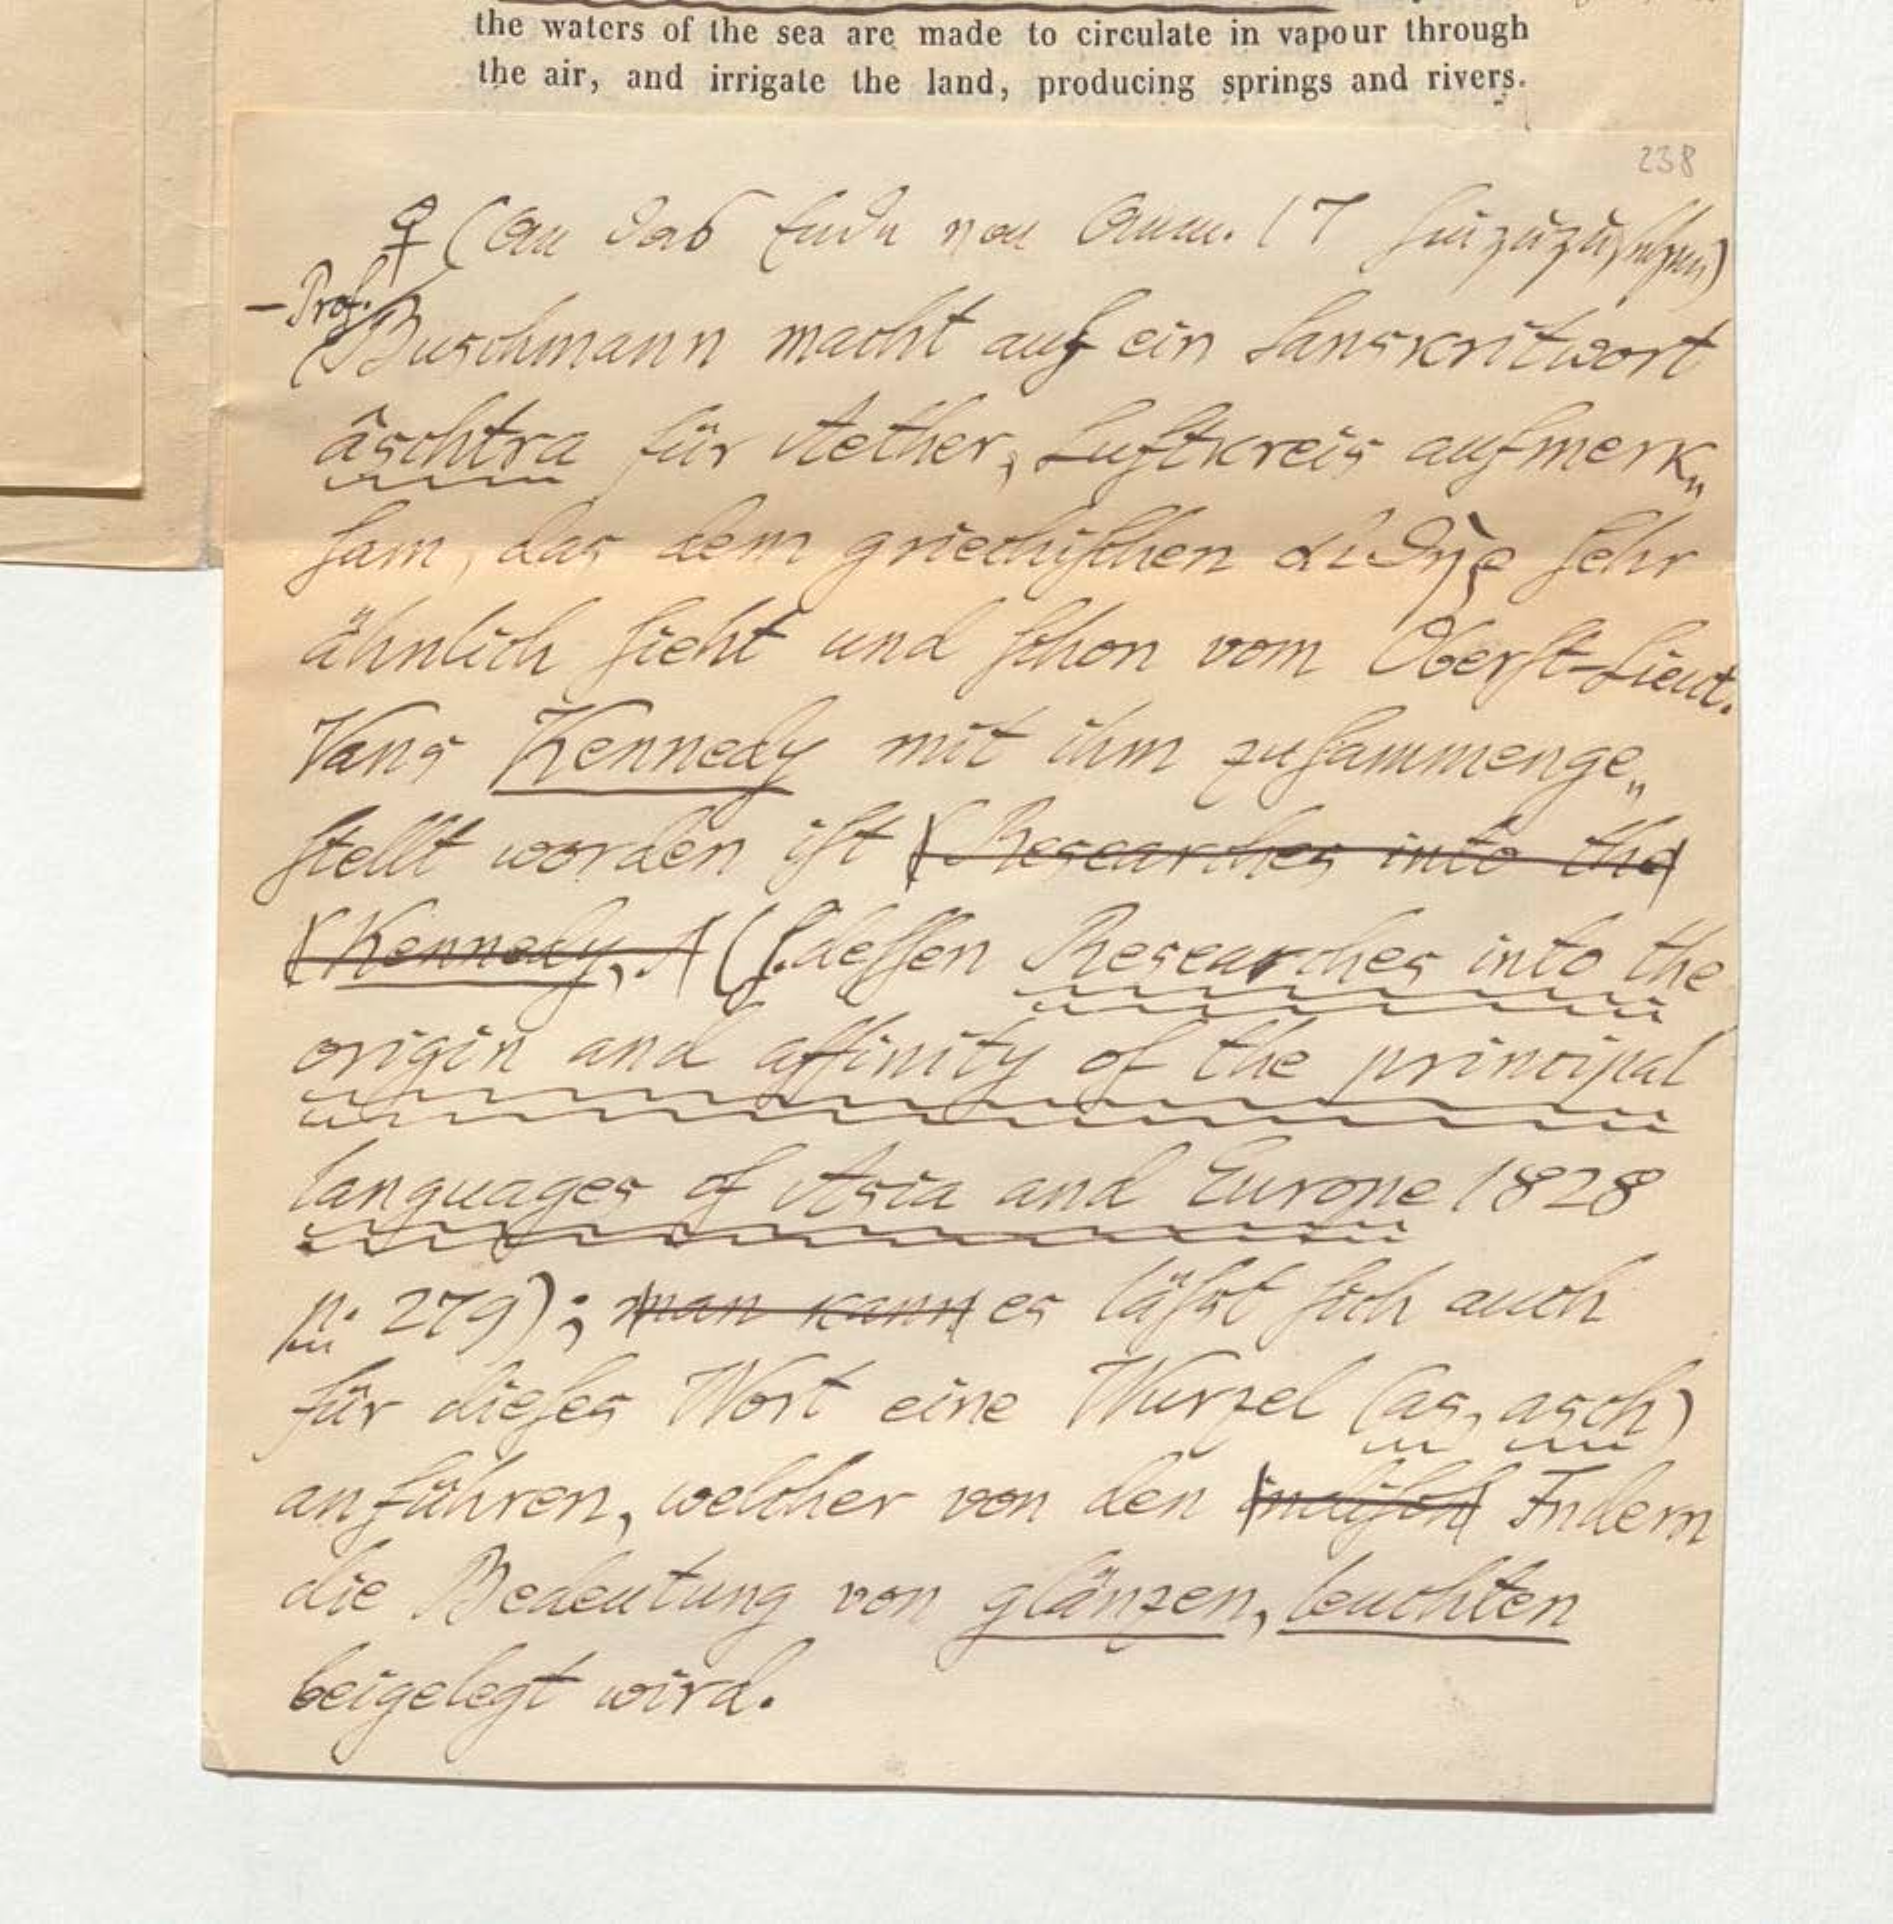 the waters of the sea are made to circulate in vapour through
the air, and irrigate the land, producing springs and rivers.
238
♀ (An das Ende von Anm. 17 hinzuzusetzen)
– Prof.
(Buschmann macht auf ein Sanskritwort
âschtra für Aether, Luftkreis aufmerk„
ſam, das dem griechiſchen αἰϑὴρ ſehr
ähnlich ſieht und ſchon vom Oberſt-Lieut.
Vans Kennedy mit ihm zuſammenge„
ſtellt worden iſt (Researches into the
(Kennedy, (ſ. deſſen Researches into the
origin and affinity of the principal
languages of Asia and Europe 1828
p. 279); man kann es läſst ſich auch
für dieſes Wort eine Wurzel (as, asch)
anführen, welcher von den indiſch Indern
die Bedeutung von glänzen, leuchten
beigelegt wird.